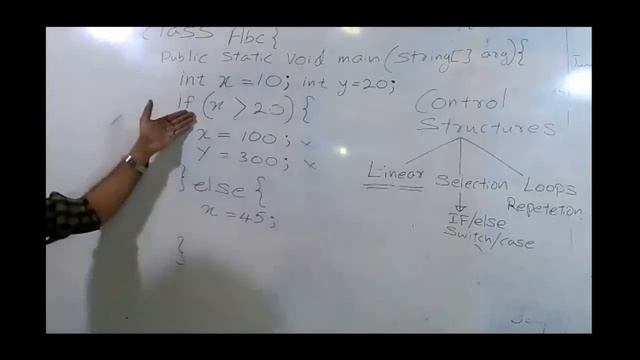 class Abc{
Public Static Void main(String[] arg){
int x=10; int y=20;
if (x > 20) {
x = 100; x
Y = 300; x
} else {
x = 45;
}
Control
Structures
Linear
Selection
IF/else
Switch/case
Loops
Repetetion